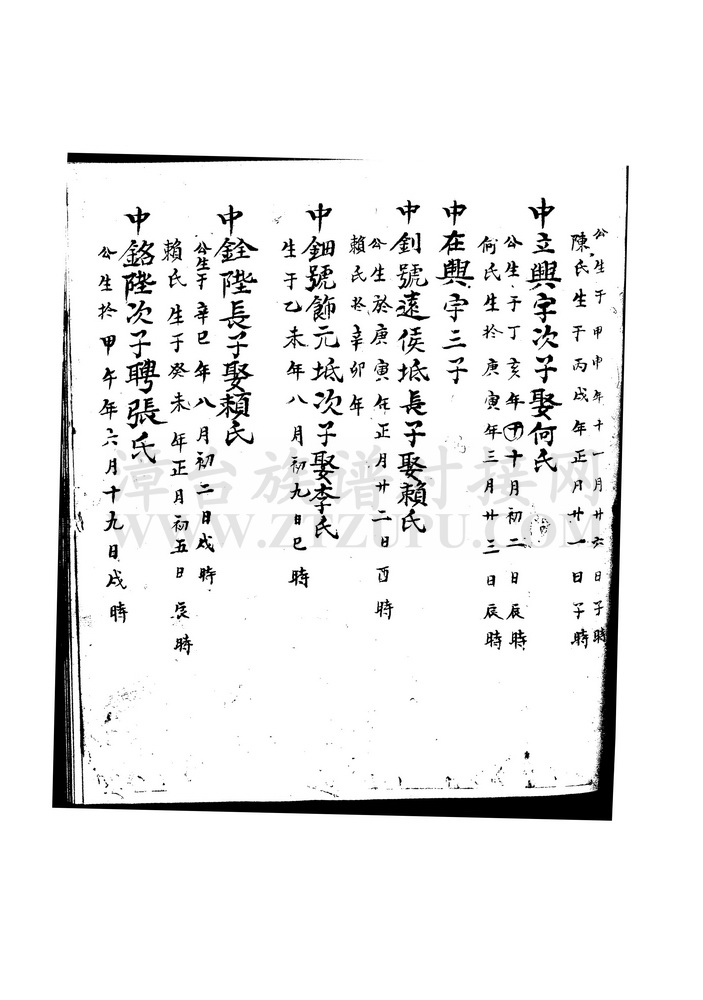 公生于甲申年十一月廿六日子時
陳氏生于丙戌年正月廿一日子時
中立興字次子娶何氏
公生于丁亥年十月初二日辰時
何氏生於庚寅年三月廿三日辰時
中在興字三子
中釗號遠侯坻長子娶賴氏
公生於庚寅年正月廿二日酉時
賴氏於辛卯年
中鈿號飾元坻次子娶李氏
生于乙未年八月初九日巳時
中銓陛長子娶賴氏
公生于辛巳年八月初二日戌時
賴氏生于癸未年正月初五日辰時
中鉻陛次子聘張氏
公生於甲午年六月十九日戌時
漳台族谱对接网
WWW.ZTZUPU.COM